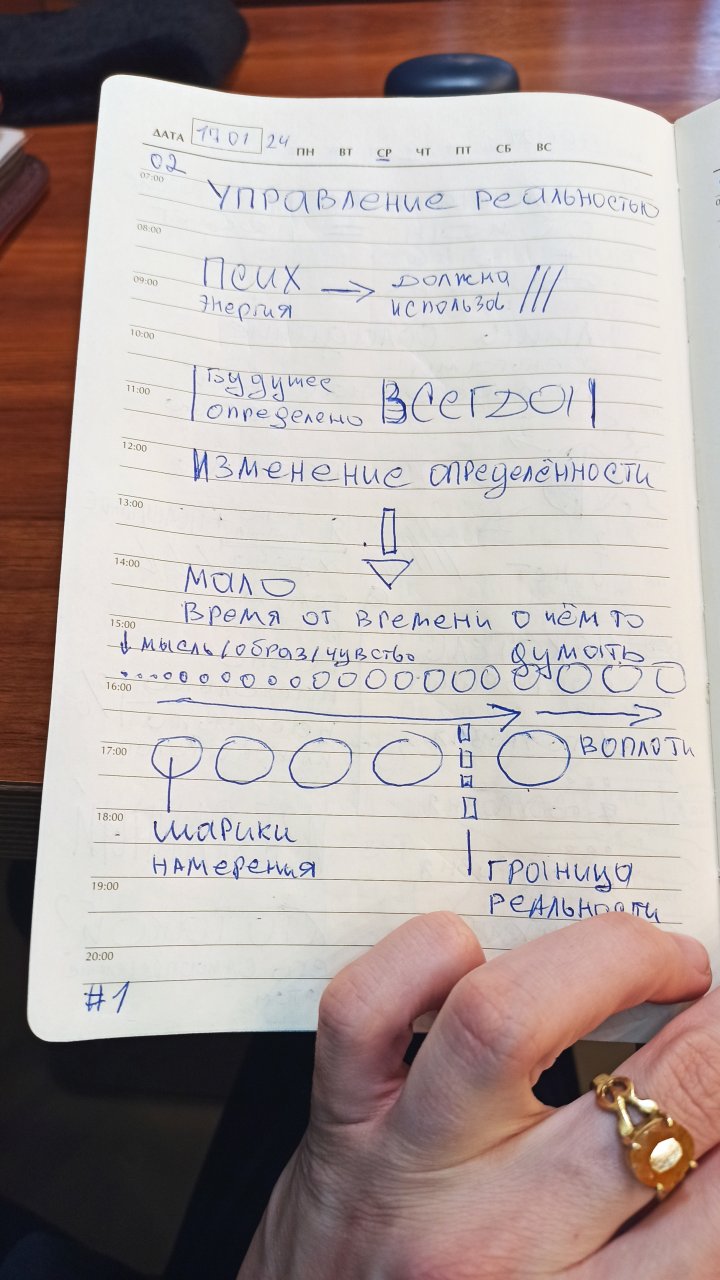 ДАТА 17 01 24 ПН ВТ СР ЧТ ПТ СБ ВС
02
07:00
Управление реальностью
08:00
09:00
Псих → должна
энергия использов
10:00
11:00
Будущее
определено ВСЕГДА
12:00
Изменение определённости
13:00
14:00
мало
время от времени о чём то
15:00
думать
↓ мысль/образ/чувство
16:00
17:00
воплоти
18:00
шарики
намерения
19:00
граница
реальности
20:00
#1